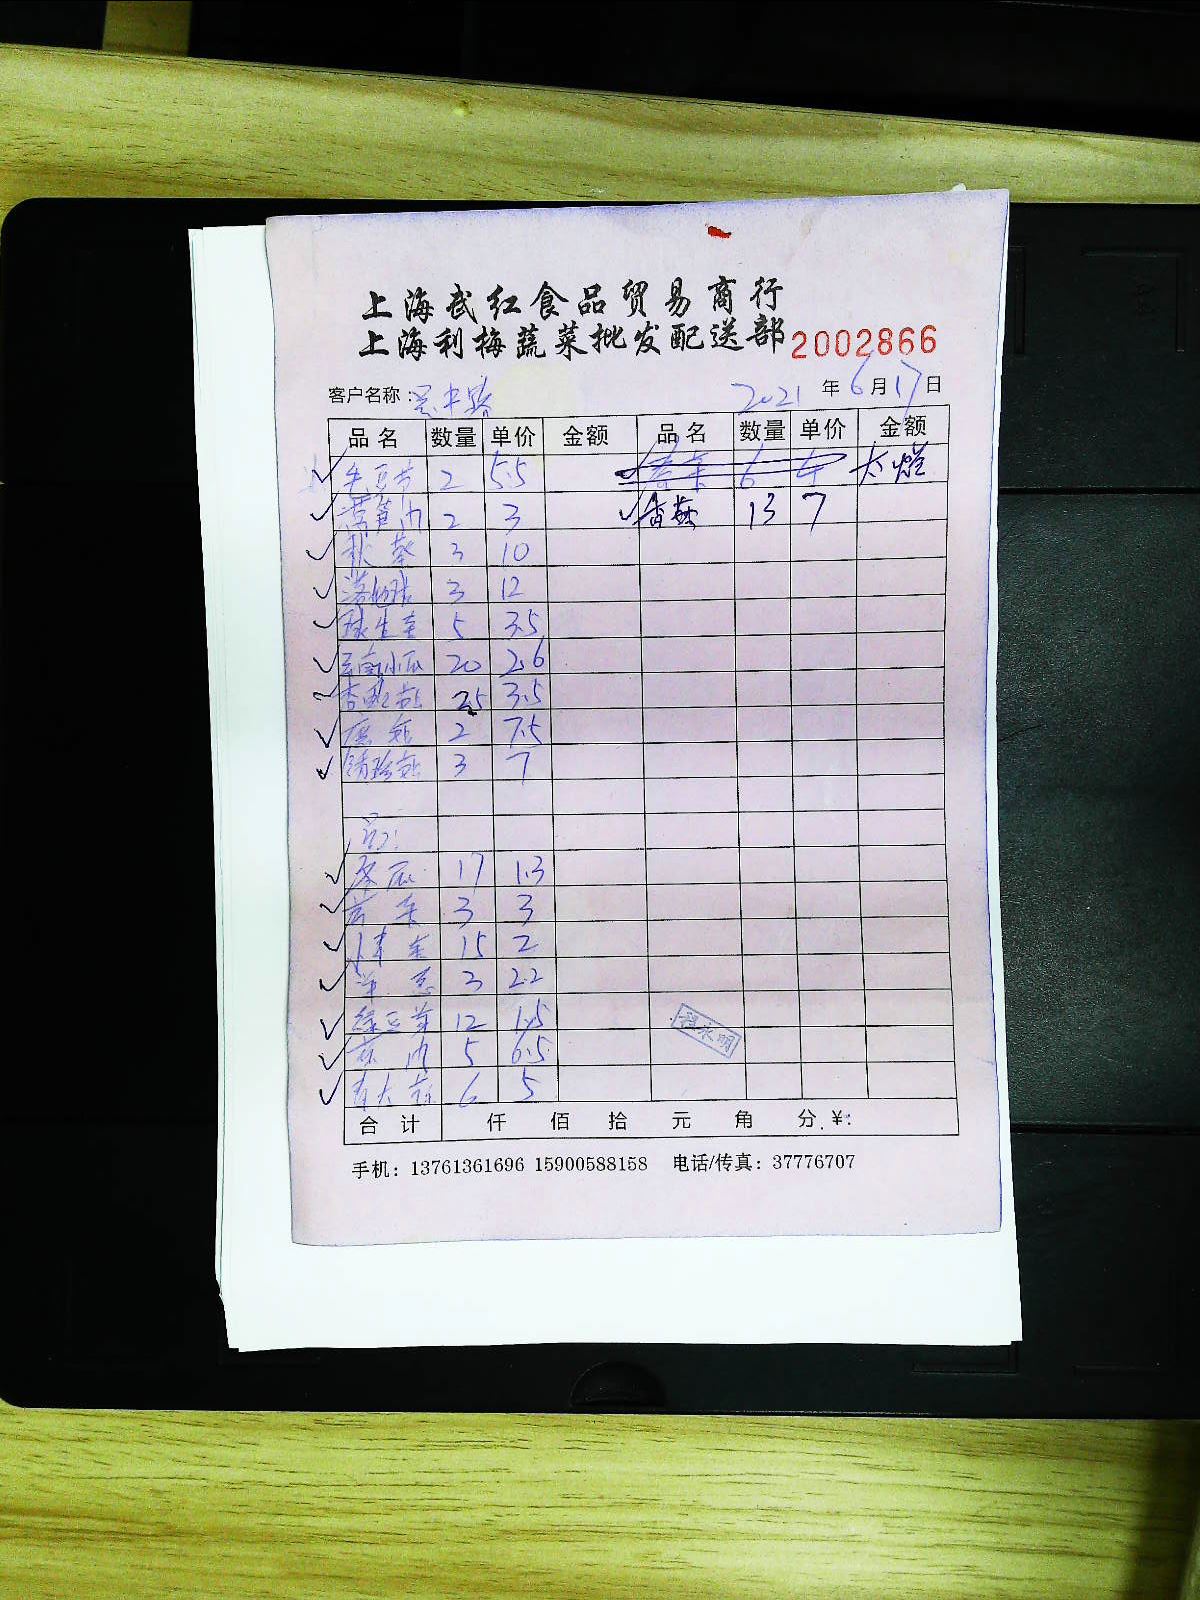 上海武红食品贸易商行
上海利梅蔬菜批发配送部 2002866
客户名称： 2021 年 6 月 17 日
品名 数量 单价 金额 品名 数量 单价 金额
毛豆节 2 5.5 香菜 6 4 太烂
莴笋 2 3 香菇 13 7
秋葵 3 10
3 12
球生菜 5 3.5
云南小瓜 20 2.6
杏鲍菇 25 3.5
2 7.5
3 7
冬瓜 17 1.3
3 3
青 15 2
洋葱 3 2.2
绿豆芽 12 1.5
5 6.5
6 5
合计 仟 佰 拾 元 角 分.￥:
程永明
手机：13761361696 15900588158 电话/传真：37776707